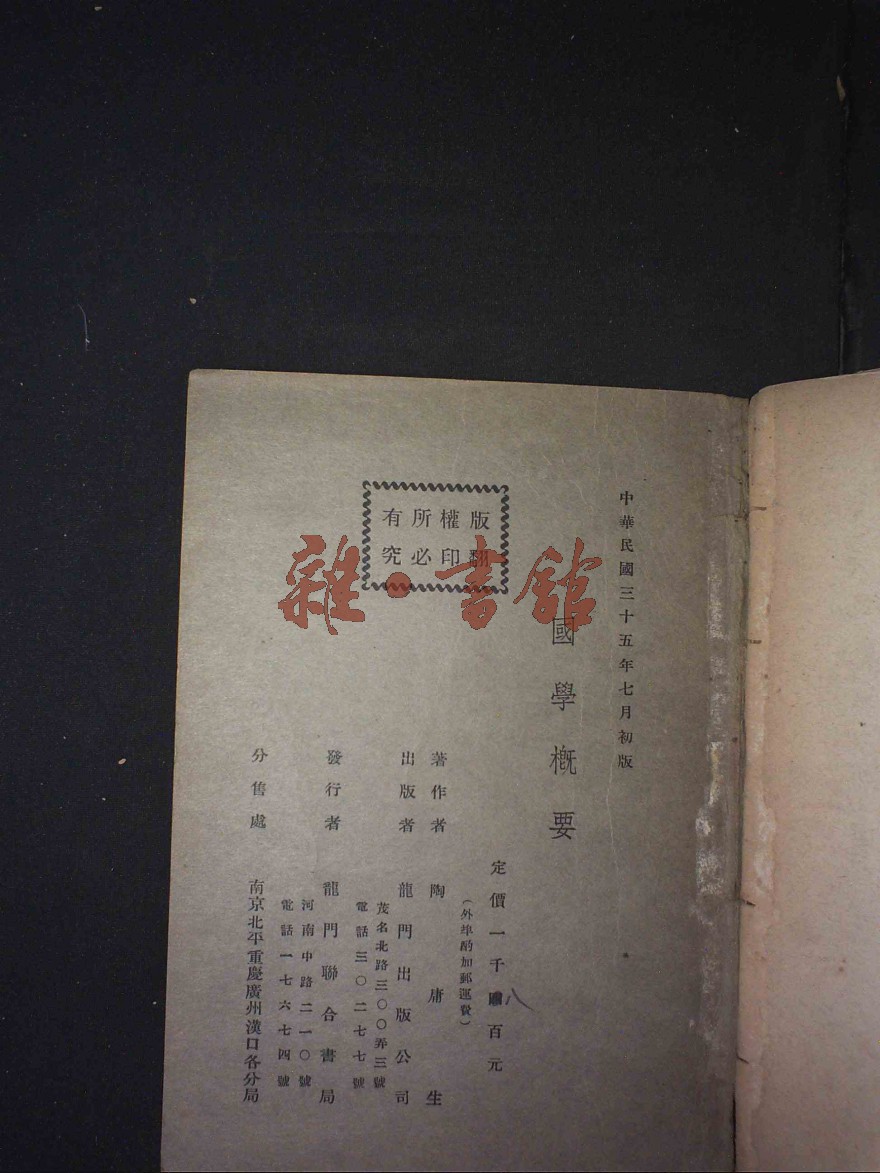 中華民國三十五年七月初版
國學概要
定價一千八百元
(外埠酌加郵運費)
著作者 陶庸生
出版者 龍門出版公司
茂名北路三〇〇弄三號
電話三〇二七七號
發行者 龍門聯合書局
河南中路二一〇號
電話一七六七四號
分售處 南京北平重慶廣州漢口各分局
版權所有
翻印必究
雜·書館